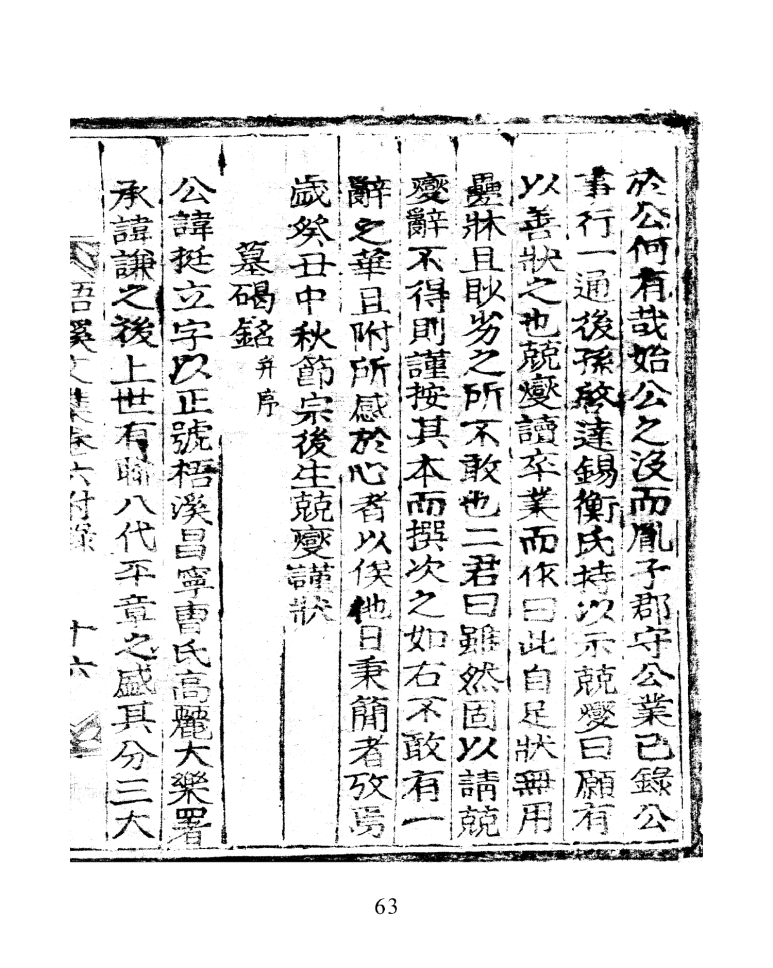 於公何有哉始公之沒而胤子郡守公業已錄公
事行一通後孫啓達錫衡氏持以示兢燮曰願有
以善狀之也兢燮讀卒業而作曰此自足狀無用
疊牀且眇劣之所不敢也二君曰雖然固以請兢
燮辭不得則謹按其本而撰次之如右不敢有一
辭之華且附所感於心者以俟他日秉簡者攷焉
歲癸丑中秋節宗後生兢燮謹狀
墓碣銘并序
公諱挺立字以正號梧溪昌寧曺氏高麗大樂署
承諱謙之後上世有聯八代平章之盛其分三大
梧溪文集卷六附錄 十六
63